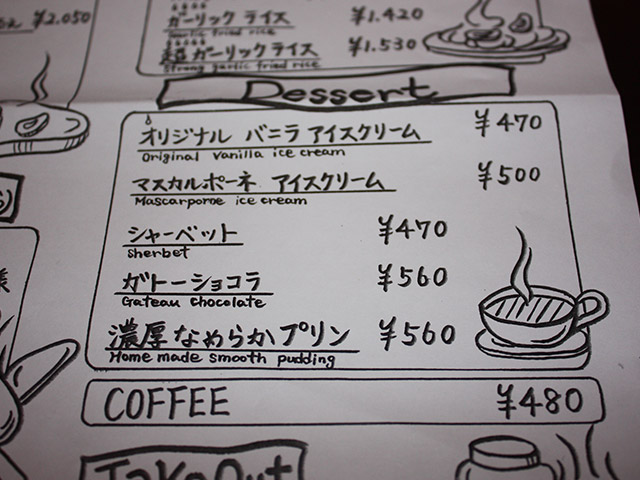 ¥2.050
ガーリック ライス ¥1.420
Garlic fried rice
超 ガーリック ライス ¥1.530
Strong garlic fried rice
Dessert
オリジナル バニラ アイスクリーム ¥470
Original vanilla ice cream
マスカルポーネ アイスクリーム ¥500
Mascarpone ice cream
シャーベット ¥470
Sherbet
ガトーショコラ ¥560
Gateau chocolate
濃厚なめらかプリン ¥560
Home made smooth pudding
COFFEE ¥480
Take Out